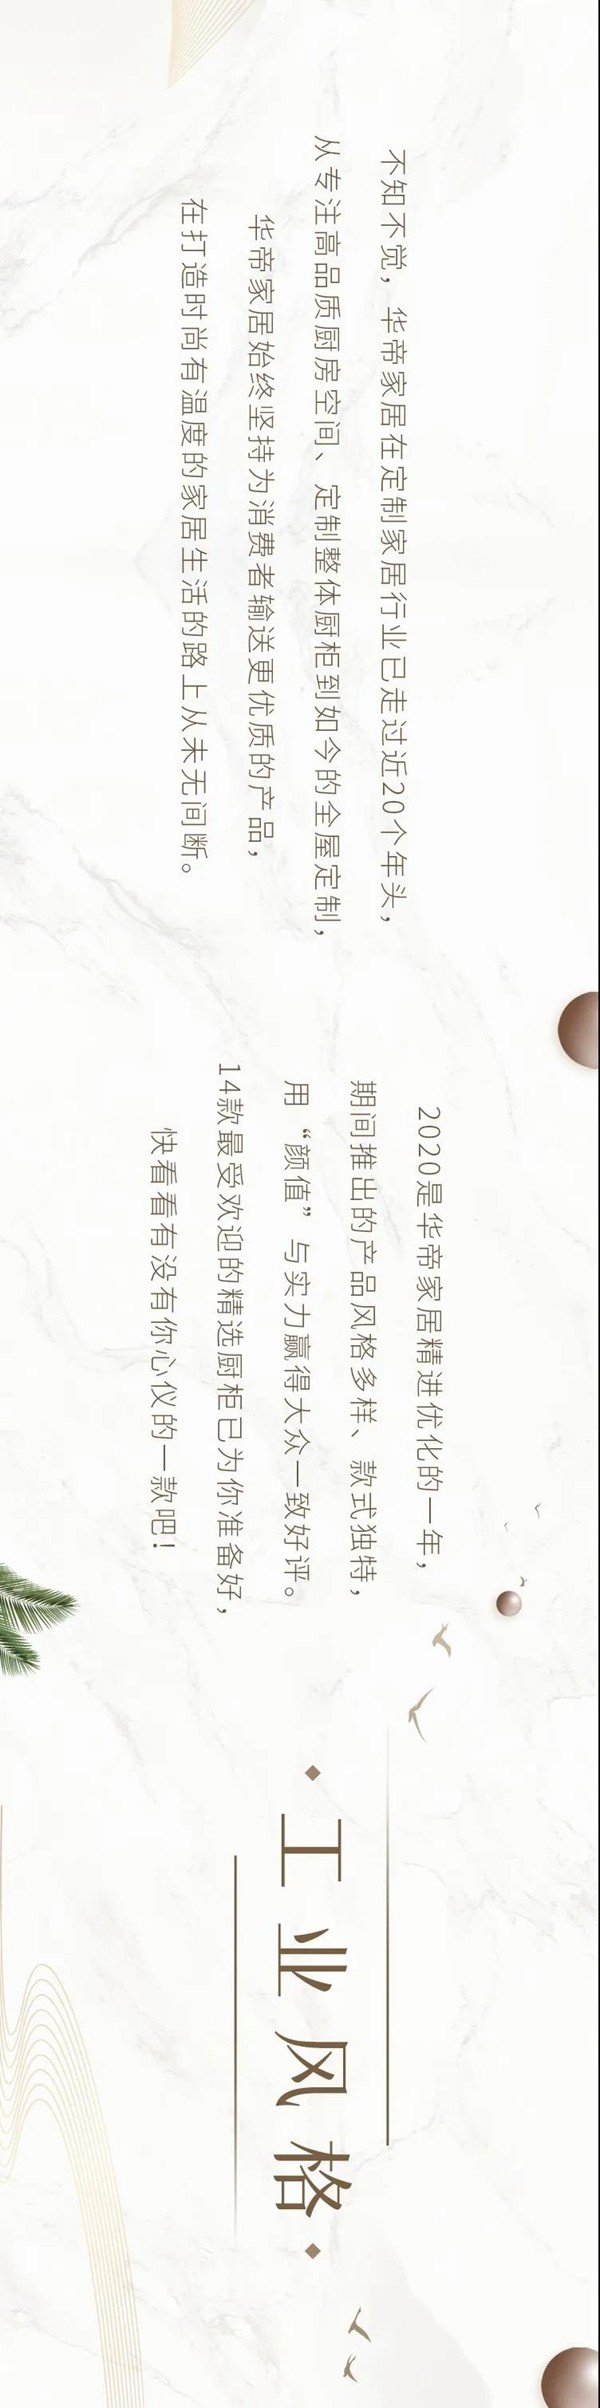 不知不觉，华帝家居在定制家居行业已走过近20个年头，
从专注高品质厨房空间、定制整体厨柜到如今的全屋定制，
华帝家居始终坚持为消费者输送更优质的产品，
在打造时尚有温度的家居生活的路上从未无间断。
2020是华帝家居精进优化的一年，
期间推出的产品风格多样、款式独特，
用“颜值”与实力赢得大众一致好评。
14款最受欢迎的精选厨柜已为你准备好，
快看看有没有你心仪的一款吧！
工业风格